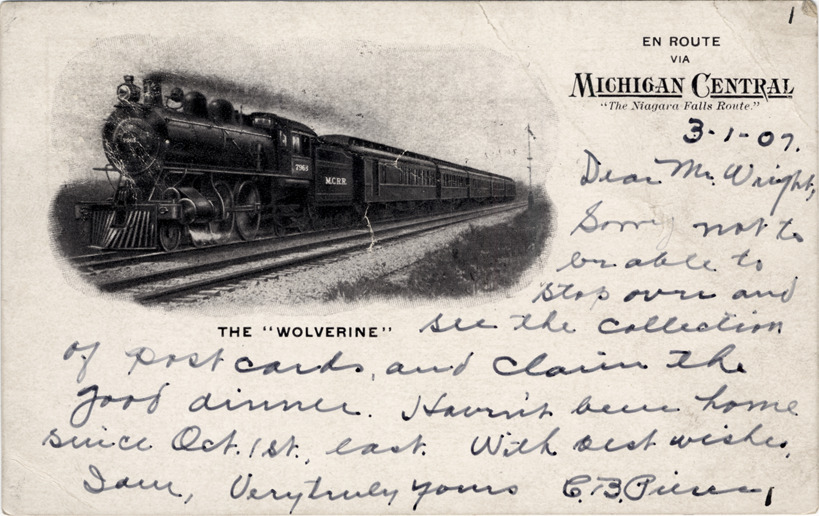 1
EN ROUTE
VIA
MICHIGAN CENTRAL
"The Niagara Falls Route."
3-1-07.
Dear Mr. Wright,
Sorry not to
be able to
stop over and
see the collection
of post cards, and claim the
good dinner. Haven't been home
since Oct. 1st, last. With best wishes,
I am, Very truly yours C.B. Pierce,
THE "WOLVERINE"
7963
M.C.R.R.